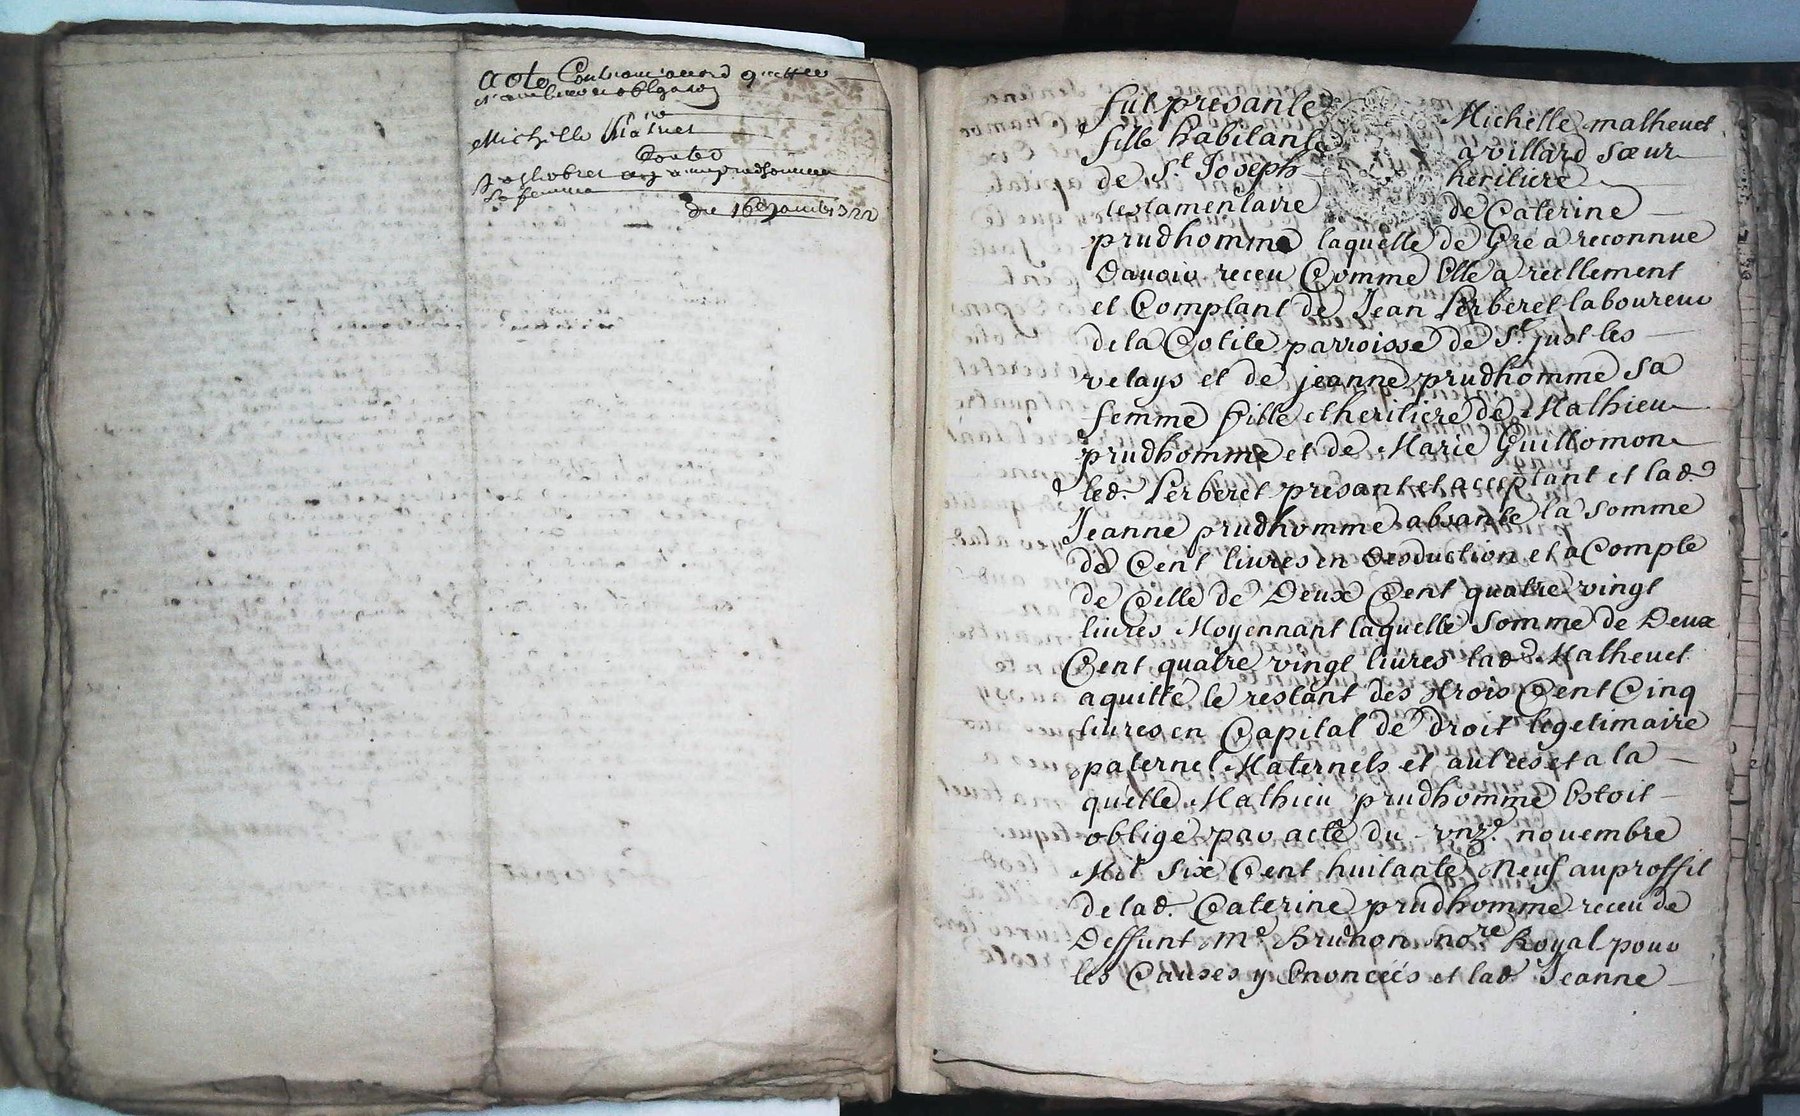 acte Contenant accord quittee
et obligaon
Michelle Matuet
Contre
sa femme
du 16e
fut presante Michelle malheuet
fille habitante a villard sœur
de St. Joseph heritiere
testamentaire de Caterine
prudhomme laquelle de Gré a reconnue
Davoir receu Comme Elle a reellement
et Complant de Jean Perberet laboureur
de la Cotile parroisse de St. just les
velays et de jeanne prudhomme sa
femme fille et heritiere de Mathieu
prudhomme et de Marie Guillomon
led. Perberet presant et acceptant et lad.
Jeanne prudhomme absante la somme
de Cent livres en Desduction et a Compte
de Celle de Deux Cent quatre vingt
livres Moyennant laquelle somme de Deux
Cent quatre vingt livres lad. Malheuet
a quitté le restant des trois Cent Cinq
livres en Capital de droit legetimaire
paternel Maternels et autres et a la
quelle Mathieu prudhomme Estoit
obligé par acte du vnze. novembre
Mil six Cent huitante Neuf au proffit
de lad. Caterine prudhomme receu de
Deffunt Me. Brunon nore Royal pour
les Causes y Enoncéés et lad. Jeanne